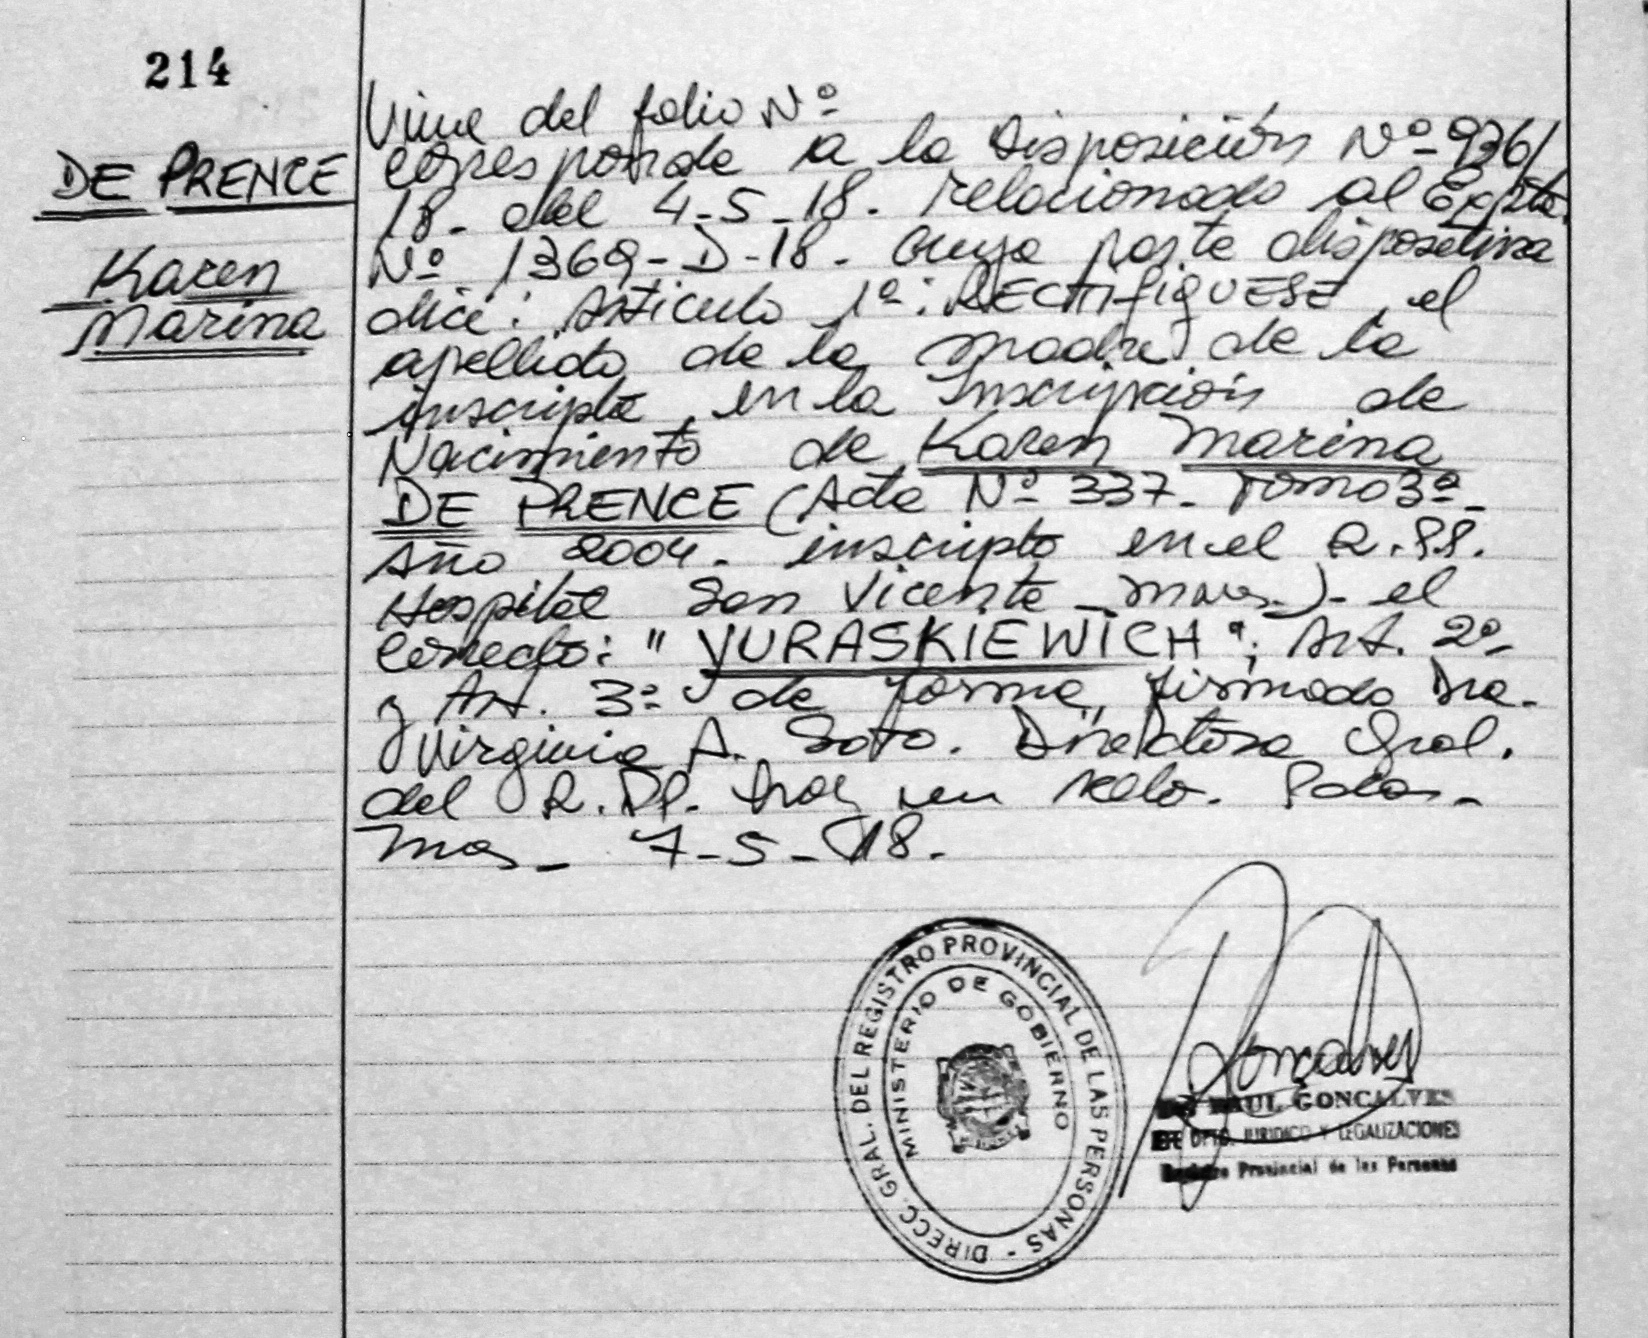 214
DE PRENCE
Karen
Marina
Viene del folio Nº
corresponde a la Disposición Nº 936/
18. del 4-5-18. relacionado al Expte.
Nº 1369-D-18. cuya parte dispositiva
dice: Articulo 1º: RECTIFIQUESE el
apellido de la madre de la
inscripta, en la Inscripción de
Nacimiento de Karen Marina
DE PRENCE (Acta Nº 337. Tomo 3º-
Año 2004. inscripto en el R.PP.
Hospital San Vicente -Mnes-)- el
correcto: "YURASKIEWICH"; Art. 2º-
y Art. 3º de forma, firmado Dra.
Virginia A. Soto. Directora Gral.
del R.PP. hay un sello. Pdas-
Mnes- 7-5-18.
DIRECC. GRAL. DEL REGISTRO PROVINCIAL DE LAS PERSONAS -
MINISTERIO DE GOBIERNO
Goncalves
RAUL GONCALVES
JEFE DPTO. JURIDICO Y LEGALIZACIONES
Registro Provincial de las Personas